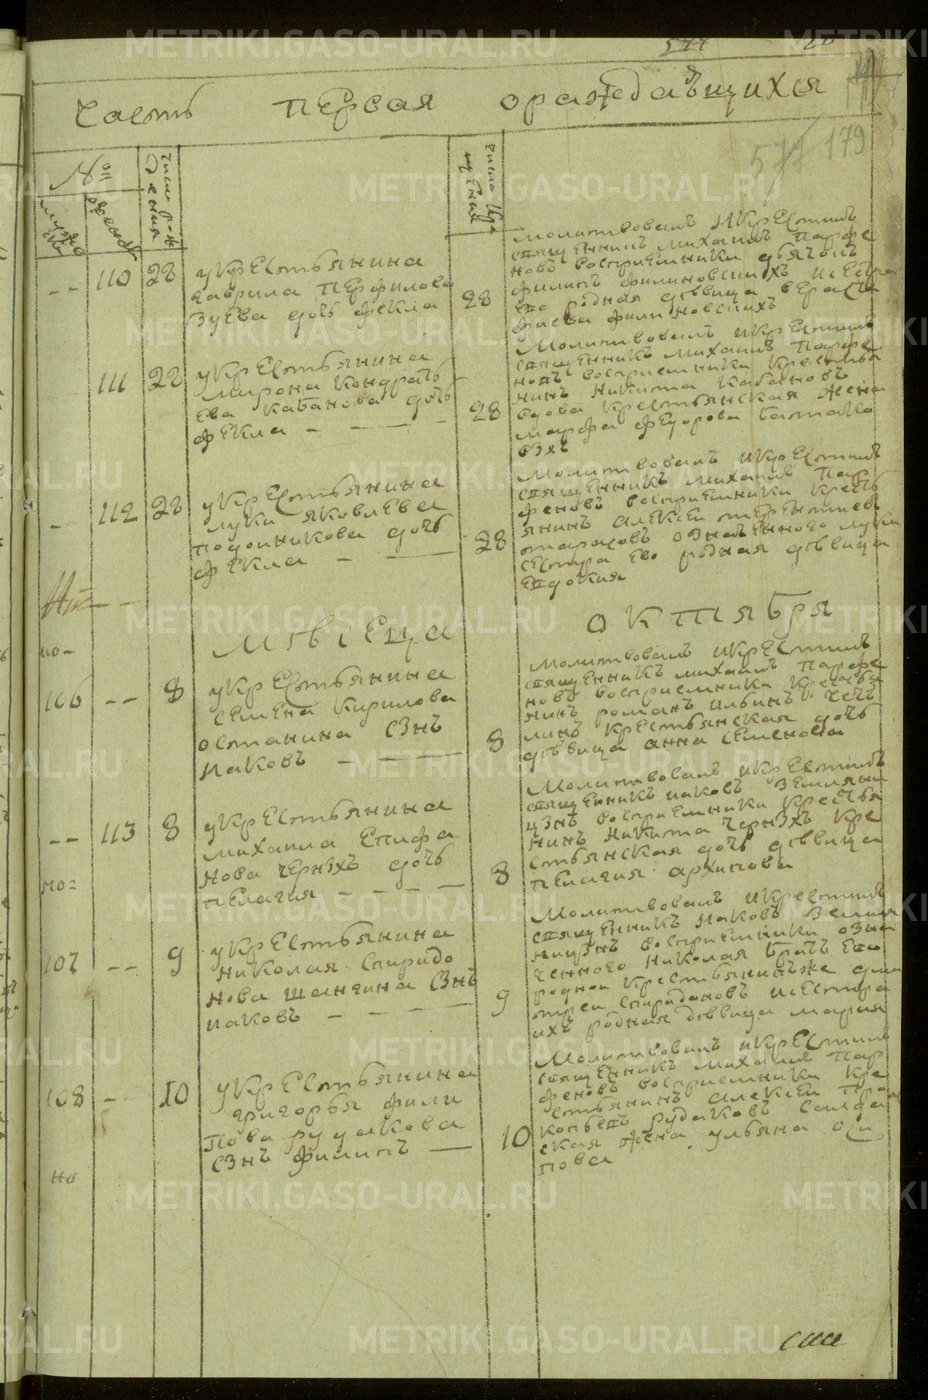 METRIKI.GASO-URAL.RU
часть первая ораждаъщихся
179
число рож
дения
110 28 укрестьянина
гаврила перфилова
зуева дочь фекла
28
молитвовалъ икрестилъ
священникъ михаилъ парфе
новъ восприемники
филипъ филиновскихъ исестра
ево родная девица
филиновскихъ
111 28 укрестьянина
мирона кондрать
ева кабанова дочь
фекла
28
молитвовалъ икрестилъ
священникъ михаилъ парфе
новъ восприемники крестья
нинъ никита кабановъ
вдова крестьянская жена
марфа федорова
112 28 укрестьянина
луки яковлева
подойникова дочь
фекла
28
молитвовалъ икрестилъ
священникъ михаилъ пар
феновъ восприемники кресть
янинъ алексеи терентиевъ
означенного луки
сестра ево родная девица
евдокия
месеца октября
но
106 8 укрестьянина
семена кирилова
останина сынъ
иаковъ
8
молитвовалъ икрестилъ
священникъ михаилъ парфе
новъ восприемники крестья
нинъ романъ ильинъ
крестьянская дочь
девица анна семенова
113 8 укрестьянина
михаила епифа
нова черныхъ дочь
пелагия
8
молитвовалъ икрестилъ
священникъ иаковъ земляни
цынъ восприемники крестья
нинъ никита черныхъ кре
стьянская дочь девица
пелагия архипова
но
107 9 укрестьянина
николая спиридо
нова шангина сынъ
иаковъ
9
молитвовалъ икрестилъ
священникъ иаковъ земля
ницынъ восприемники озна
ченного николая братъ ево
роднои крестьянинъже дми
треи спиридоновъ исестра
ихъ родная девица мария
108 10 укрестьянина
григорья фили
пова рудакова
сынъ филипъ
10
молитвовалъ икрестилъ
священникъ михаилъ пар
феновъ восприемники кре
стьянинъ алексеи про
копьевъ рудаковъ
ская жена ульяна оси
пова
но